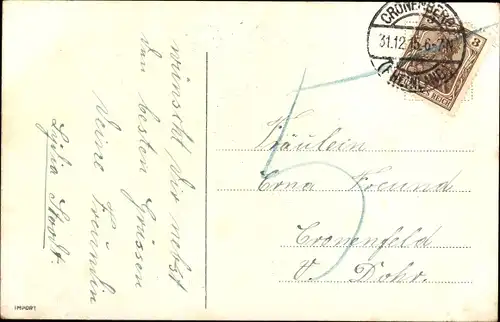 wünscht Dir nebst
den besten Grüssen
Deine Freundin
Lydia
CRONENBERG
31.12.15.6-7N
(RHEINLAND)
3
REICH
5
Fräulein
Erna Freund
Cronenfeld
V. Dohr.